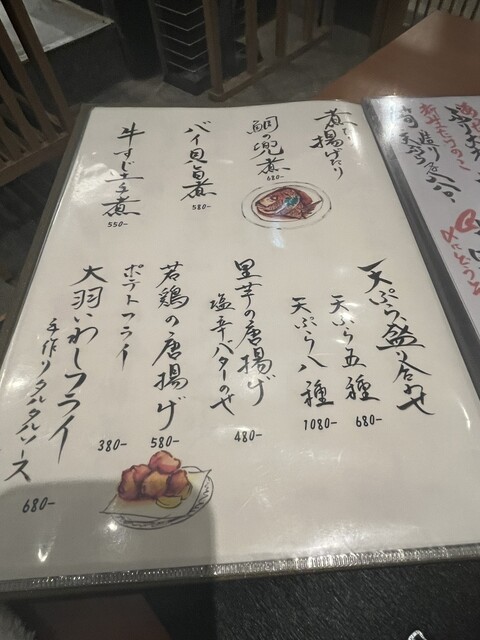 煮たり揚げたり
鯛の兜煮
680-
バイ貝旨煮
580-
牛すじ土手煮
550-
天ぷら盛り合わせ
天ぷら五種
680-
天ぷら八種
1080-
里芋の唐揚げ
塩辛バターのせ
480-
若鶏の唐揚げ
580-
ポテトフライ
380-
大羽いわしフライ
手作りタルタルソース
680-